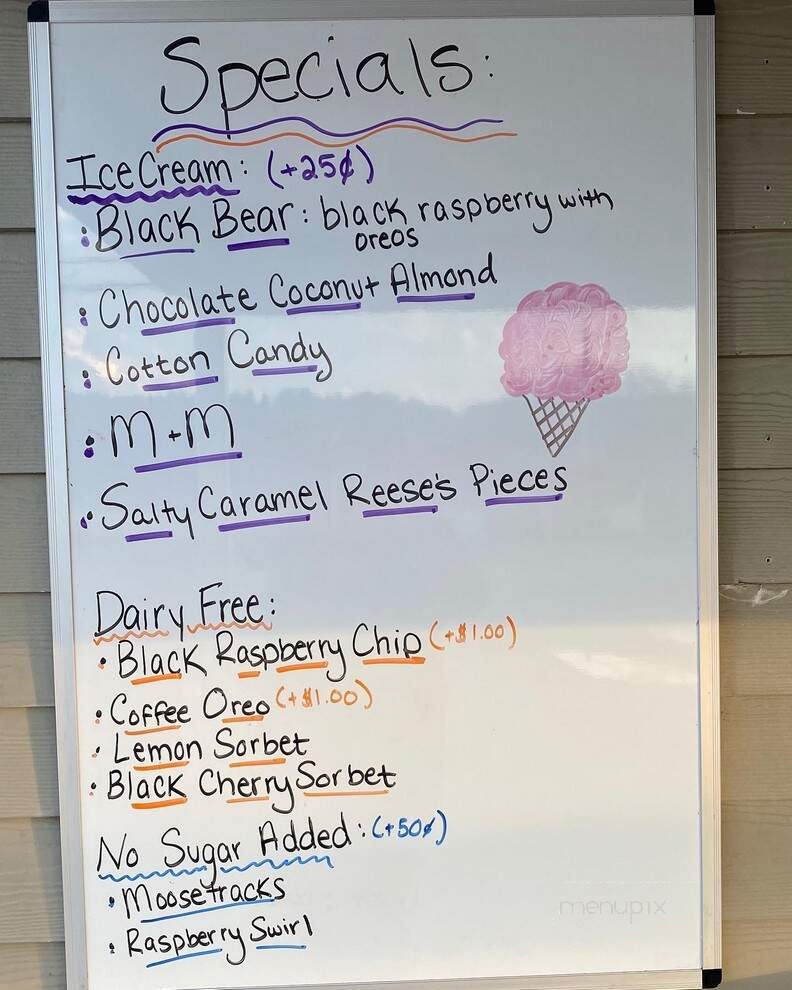 Specials:
Ice Cream: (+25¢)
: Black Bear: black raspberry with
oreos
: Chocolate Coconut Almond
: Cotton Candy
: M+M
: Salty Caramel Reese's Pieces
Dairy Free:
• Black Raspberry Chip (+$1.00)
: Coffee Oreo (+$1.00)
: Lemon Sorbet
: Black Cherry Sorbet
No Sugar Added: (+50¢)
• Moosetracks
• Raspberry Swirl
menupix